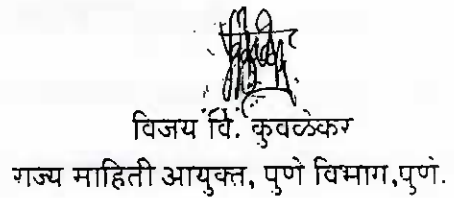 विजय वि. कुवळेकर
राज्य माहिती आयुक्त, पुणे विभाग,पुणे.